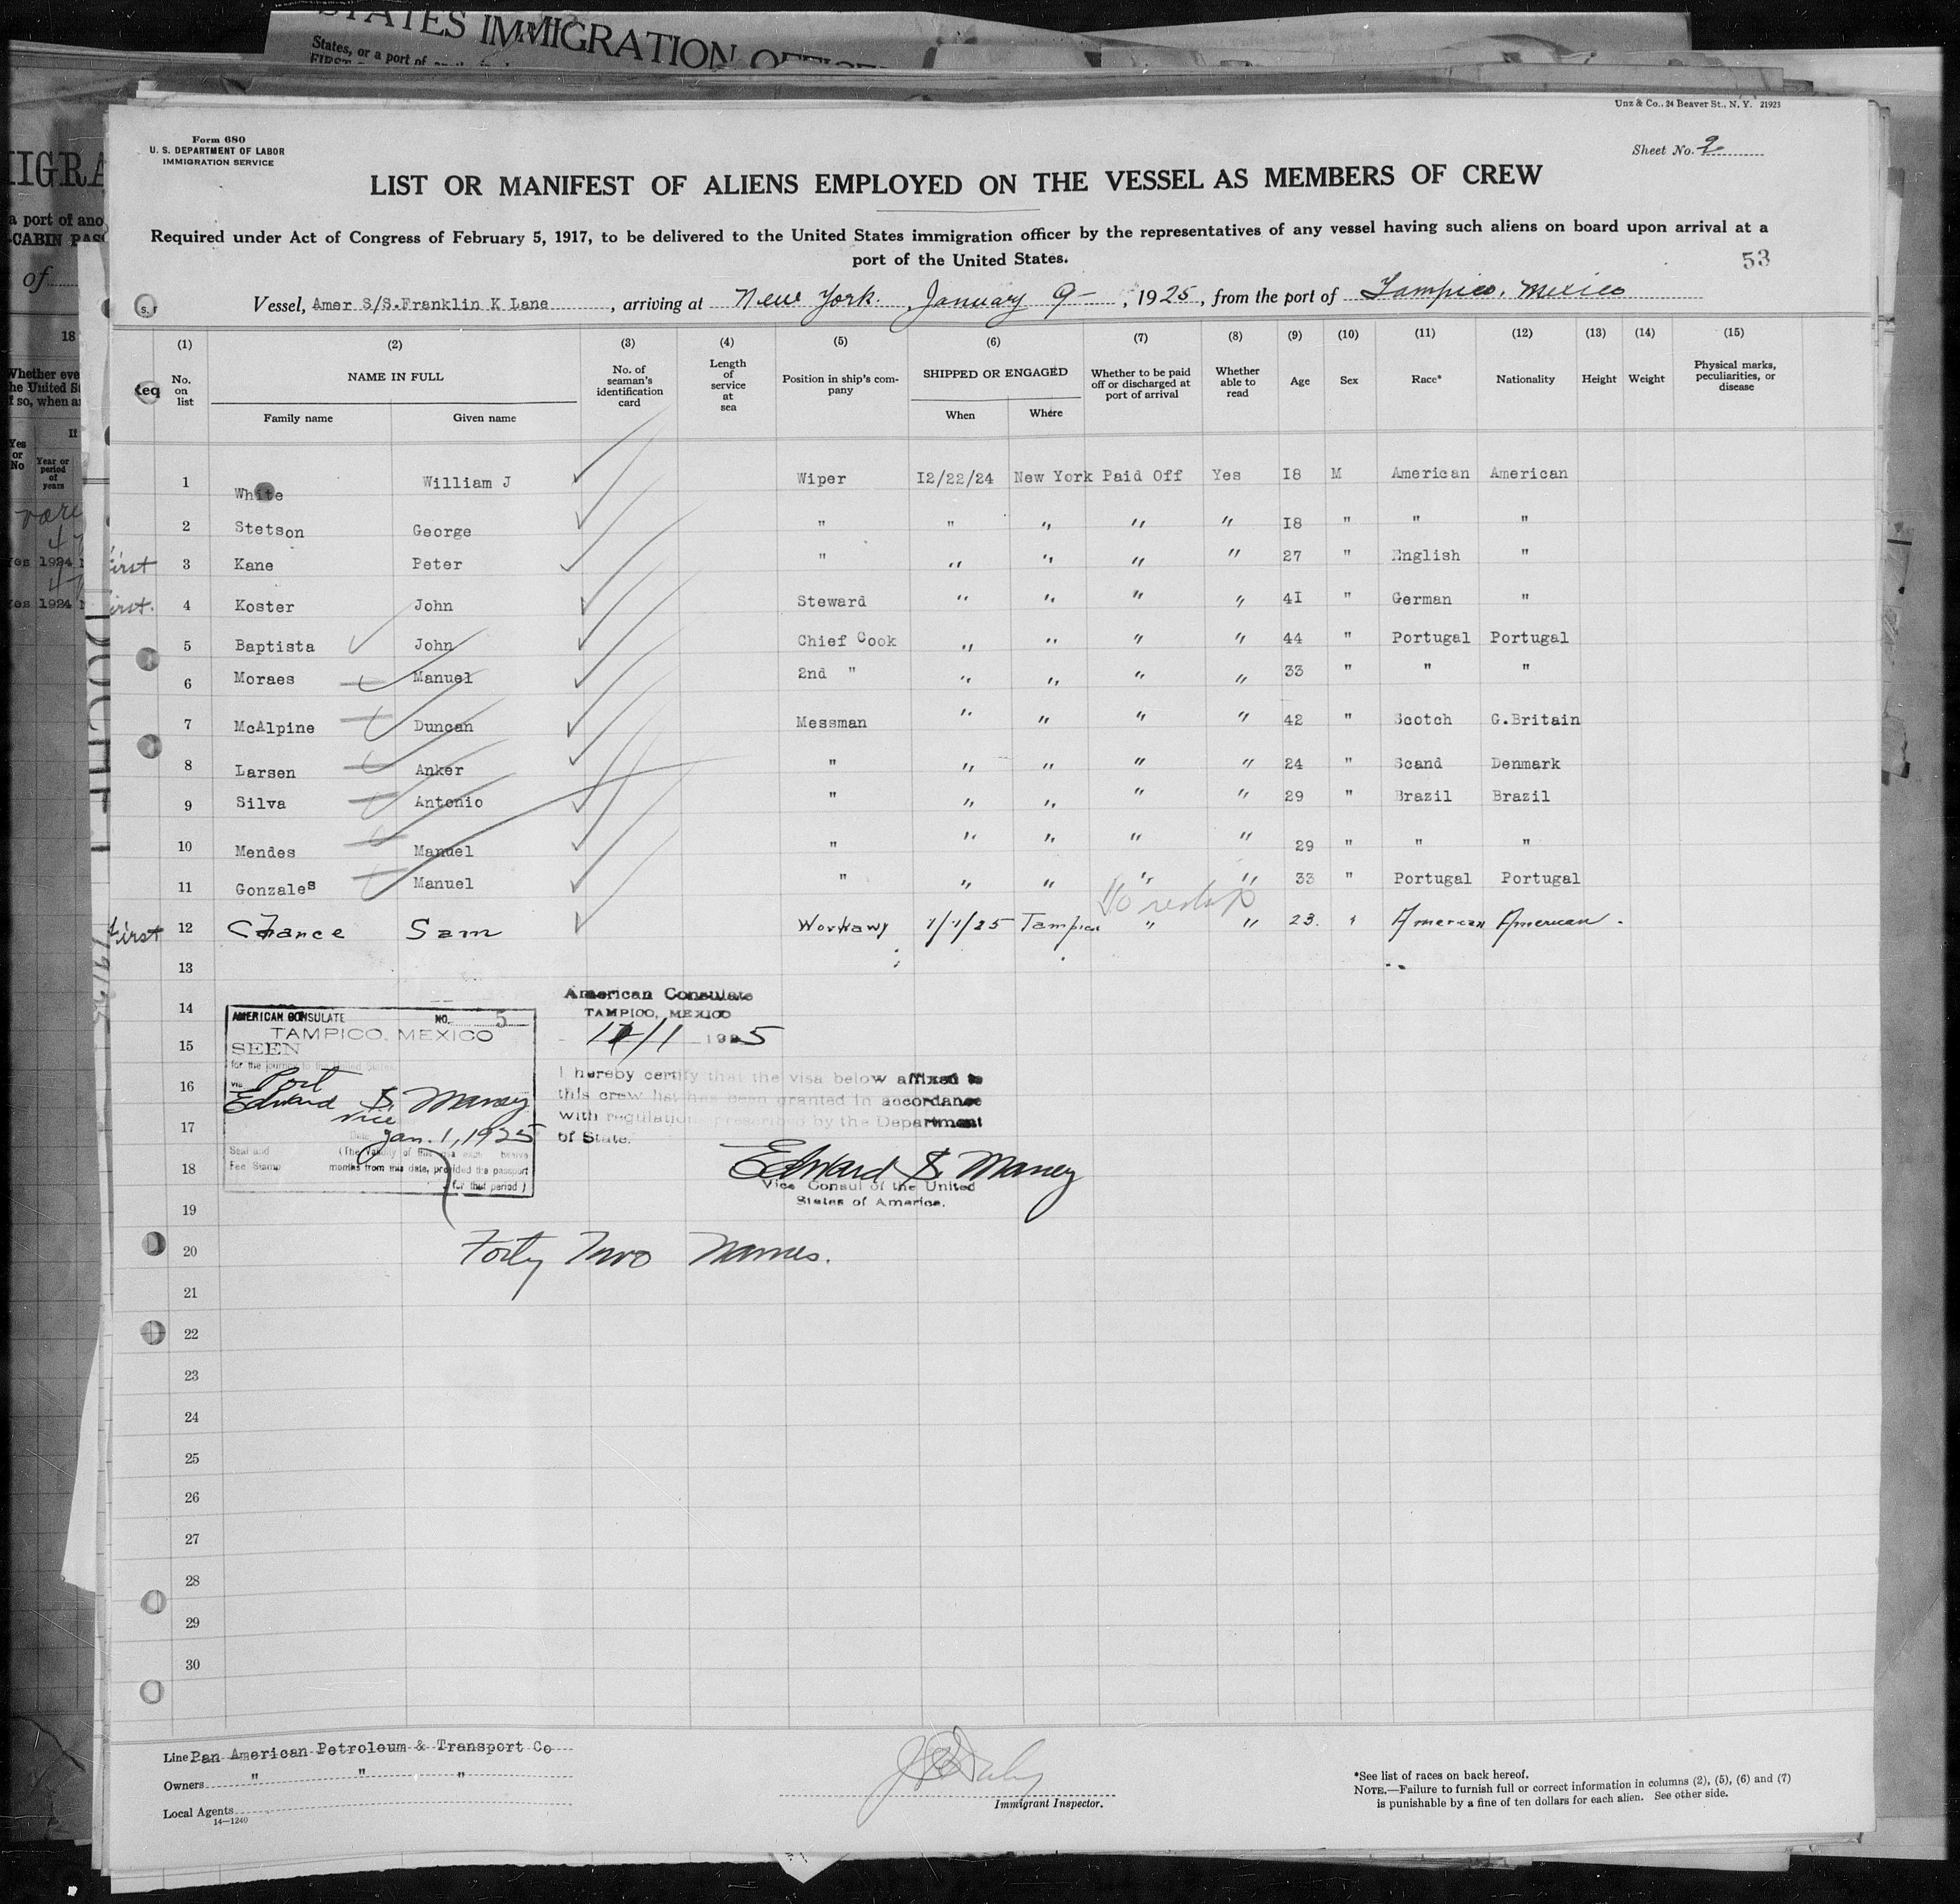 STATES IMMIGRATION OFFICE
States, or a port of
Unz & Co., 24 Beaver St., N. Y. 21923
Form 680
U. S. DEPARTMENT OF LABOR
IMMIGRATION SERVICE
Sheet No. 2
LIST OR MANIFEST OF ALIENS EMPLOYED ON THE VESSEL AS MEMBERS OF CREW
Required under Act of Congress of February 5, 1917, to be delivered to the United States immigration officer by the representatives of any vessel having such aliens on board upon arrival at a
port of the United States.
53
Vessel, Amer S/S.Franklin K Lane, arriving at New York. January 9-, 1925, from the port of Tampico, Mexico
(1) (2) (3) (4) (5) (6) (7) (8) (9) (10) (11) (12) (13) (14) (15)
No. on list NAME IN FULL Family name Given name No. of seaman's identification card Length of service at sea Position in ship's company SHIPPED OR ENGAGED When Where Whether to be paid off or discharged at port of arrival Whether able to read Age Sex Race* Nationality Height Weight Physical marks, peculiarities, or disease
1 White William J Wiper I2/22/24 New York Paid Off Yes I8 M American American
2 Stetson George " " " " " I8 " " "
first 3 Kane Peter " " " " " 27 " English "
first. 4 Koster John Steward " " " " 4I " German "
5 Baptista John Chief Cook " " " " 44 " Portugal Portugal
6 Moraes Manuel 2nd " " " " " 33 " " "
7 McAlpine Duncan Messman " " " " 42 " Scotch G.Britain
8 Larsen Anker " " " " " 24 " Scand Denmark
9 Silva Antonio " " " " " 29 " Brazil Brazil
10 Mendes Manuel " " " " " 29 " " "
11 Gonzales Manuel " " " " " 33 " Portugal Portugal
To reship
first 12 Chance Sam Workawy 1/1/25 Tampico " " 23. " American American.
13
14
15
16
17
18
19
20
21
22
23
24
25
26
27
28
29
30
AMERICAN CONSULATE NO. 5
TAMPICO, MEXICO
SEEN
for the journey to the United States
via Port
Edward S. Maney
Vice
Date Jan. 1, 1925
Seal and Fee Stamp
months from this date, provided the passport
for that period)
American Consulate
TAMPICO, MEXICO
1/1 1925
I hereby certify that the visa below affixed to
this crew list has been granted in accordance
with regulations prescribed by the Department
of State.
Edward S. Maney
Vice Consul of the United
States of America.
Forty Two Names.
Line Pan American Petroleum & Transport Co
Owners " " "
Local Agents
14—1240
Immigrant Inspector.
*See list of races on back hereof.
NOTE.—Failure to furnish full or correct information in columns (2), (5), (6) and (7)
is punishable by a fine of ten dollars for each alien. See other side.